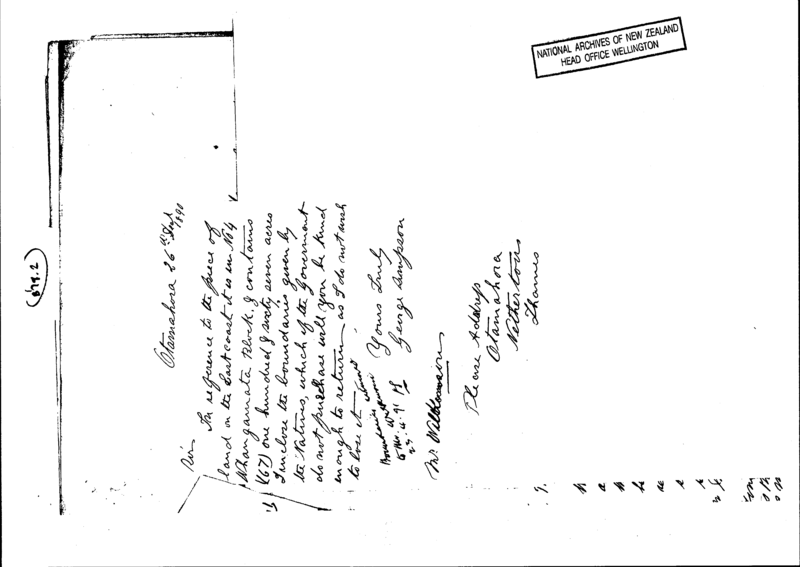 NATIONAL ARCHIVES OF NEW ZEALAND
HEAD OFFICE WELLINGTON
Otamahora 26th Sept 1890
Sir
In reference to the piece of
land on the East coast it is in No 4
Whangamata Block & contains
(167) one hundred & sixty seven acres
I inclose the boundaries given by
the Natives, which if the Government
do not purchase will you be kind
enough to return as I do not wish
to lose it
Yours Truly
George Simpson
Boundaries returned
to Mr
23.4.91
Mr Wilkinson
Please Address
Otamahora
Netherton
Thames